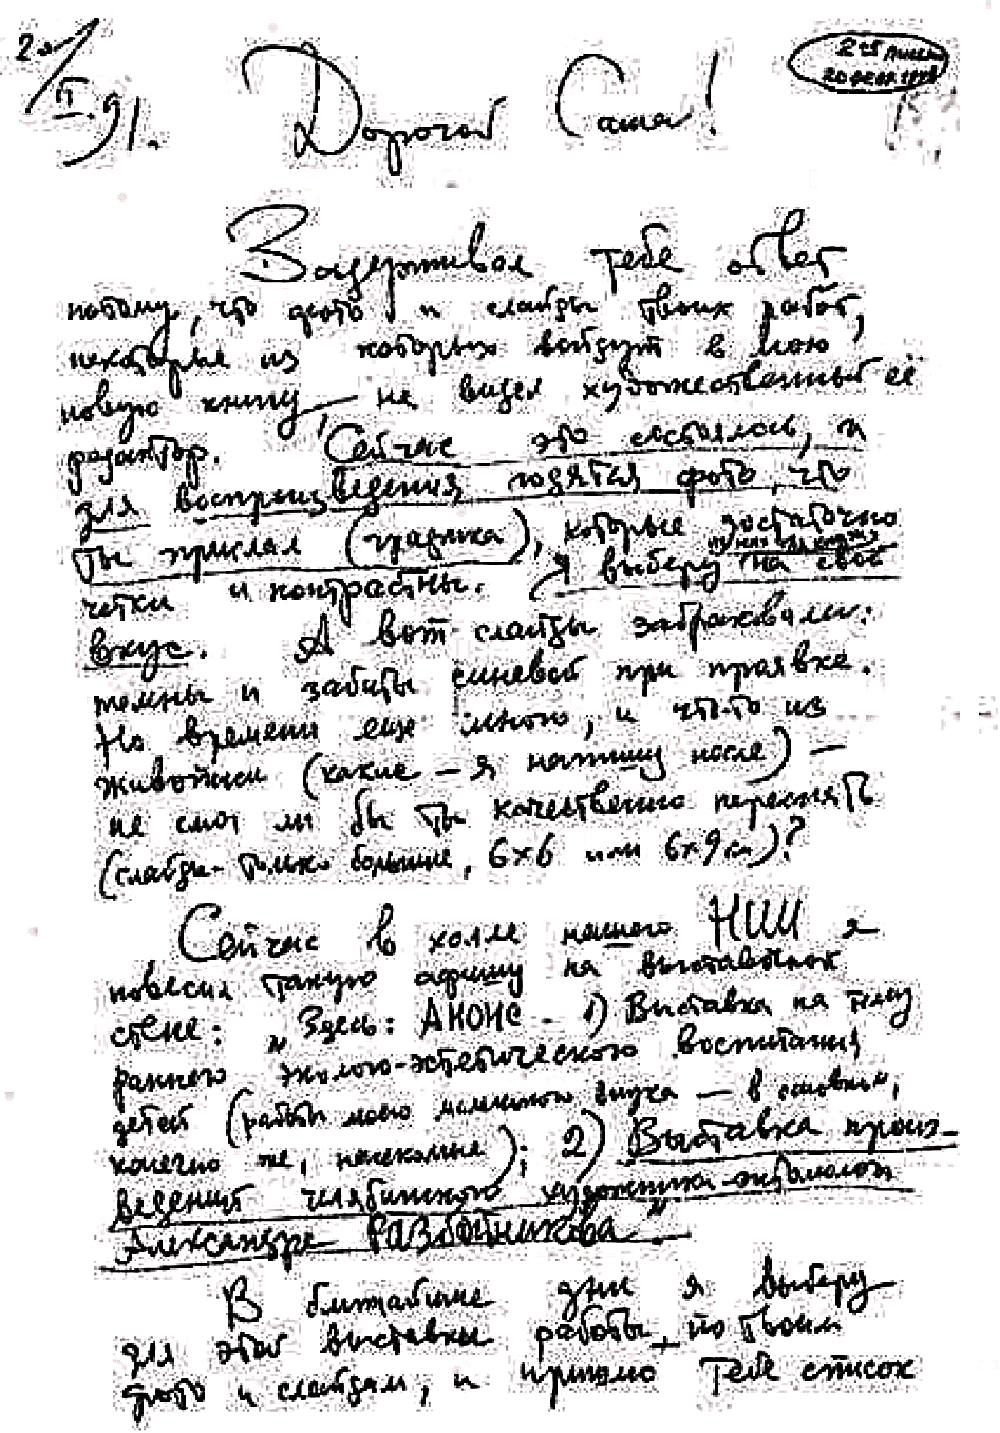 20/II.91.
Дорогой Саша!
2-е письмо
Задерживал тебе ответ
потому, что фото и слайды твоих работ,
некоторые из которых войдут в мою
новую книгу, — не видел художественный её
редактор. Сейчас это состоялось, и
для воспроизведения годятся фото, что
ты прислал (графика), которые достаточно
четки и контрастны. Я выберу на свой
вкус. А вот слайды забраковали:
темны и забиты синевой при проявке.
Но времени еще много, и что-то из
живописи (какие — я напишу после) —
не смог ли бы ты качественно переснять
(слайды - только большие, 6х6 или 6х9 см)?
Сейчас в холле нашего НИИ я
повесил такую афишу на выставочной
стене: „Здесь: АНОНС - 1) Выставка на тему
раннего эколого-эстетического воспитания
детей (работы моего маленького внука — в основном,
конечно же, насекомые); 2) Выставка произ-
ведений челябинского художника-энтомолога
Александра РАЗБОЙНИКОВА".
В ближайшие дни я выберу
для этой выставки работы, по твоим
фото и слайдам, и пришлю тебе список